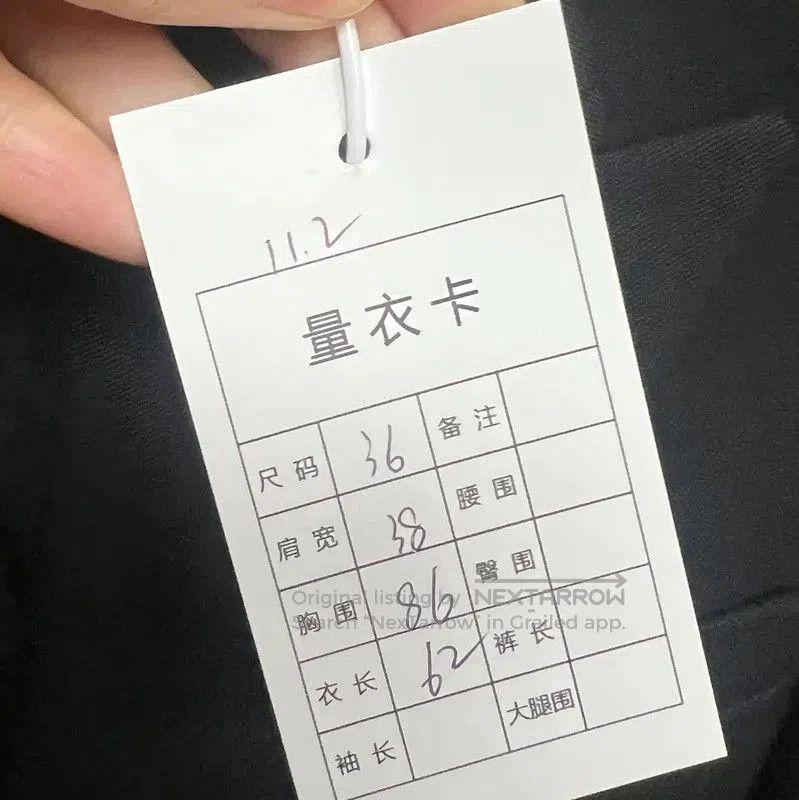 11.2
量衣卡
尺码 36 备注
肩宽 38 腰围
胸围 86 臀围
衣长 62 裤长
袖长 大腿围
Original listing by NEXTARROW
Search "Nextarrow" in Grailed app.